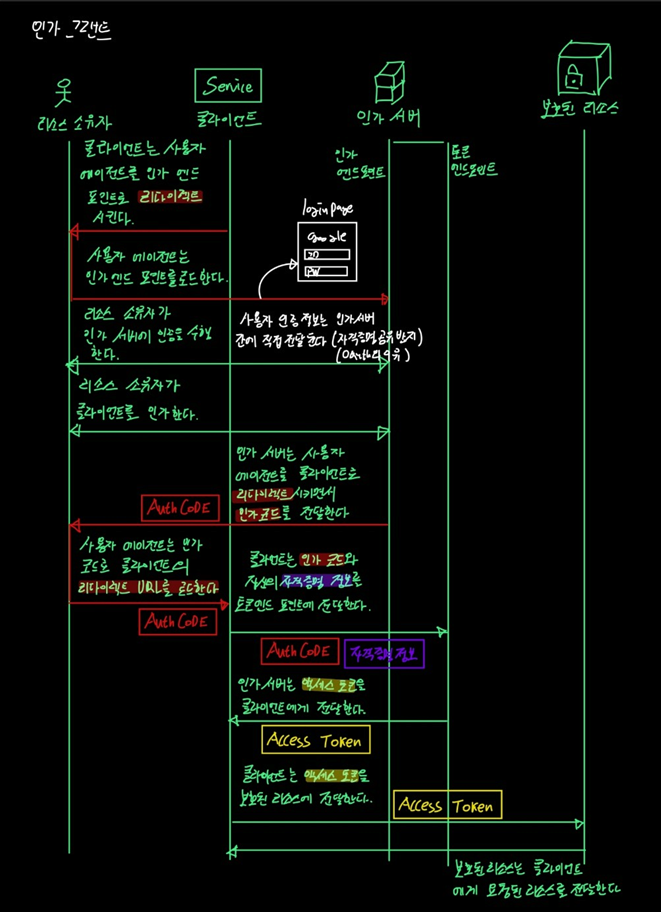 인가 그랜트
Service
리소스 소유자
클라이언트
인가 서버
보호된 리소스
인가
엔드포인트
토큰
엔드포인트
클라이언트는 사용자
에이전트를 인가 엔드
포인트로 리다이렉트
시킨다.
login page
google
ID
PW
사용자 에이전트는
인가 엔드 포인트를 로드한다.
사용자 인증 정보는 인가서버
간에 직접 전달된다 (자격증명 공유 방지)
리소스 소유자가
인가 서버에 인증을 수행
한다.
리소스 소유자가
클라이언트를 인가한다.
인가 서버는 사용자
에이전트를 클라이언트로
리다이렉트 시키면서
인가코드를 전달한다
Auth CODE
사용자 에이전트는 인가
코드로 클라이언트의
리다이렉트 URL를 로드한다
Auth CODE
클라언트는 인가 코드와
자신의 자격증명 정보를
토큰엔드 포인트에 전달한다.
Auth CODE
자격증명 정보
인가서버는 액세스 토큰을
클라이언트에게 전달한다.
Access Token
클라이언트는 액세스 토큰을
보호된 리소스에 전달한다.
Access Token
보호된 리소스는 클라이언트
에게 요청된 리소스로 전달한다